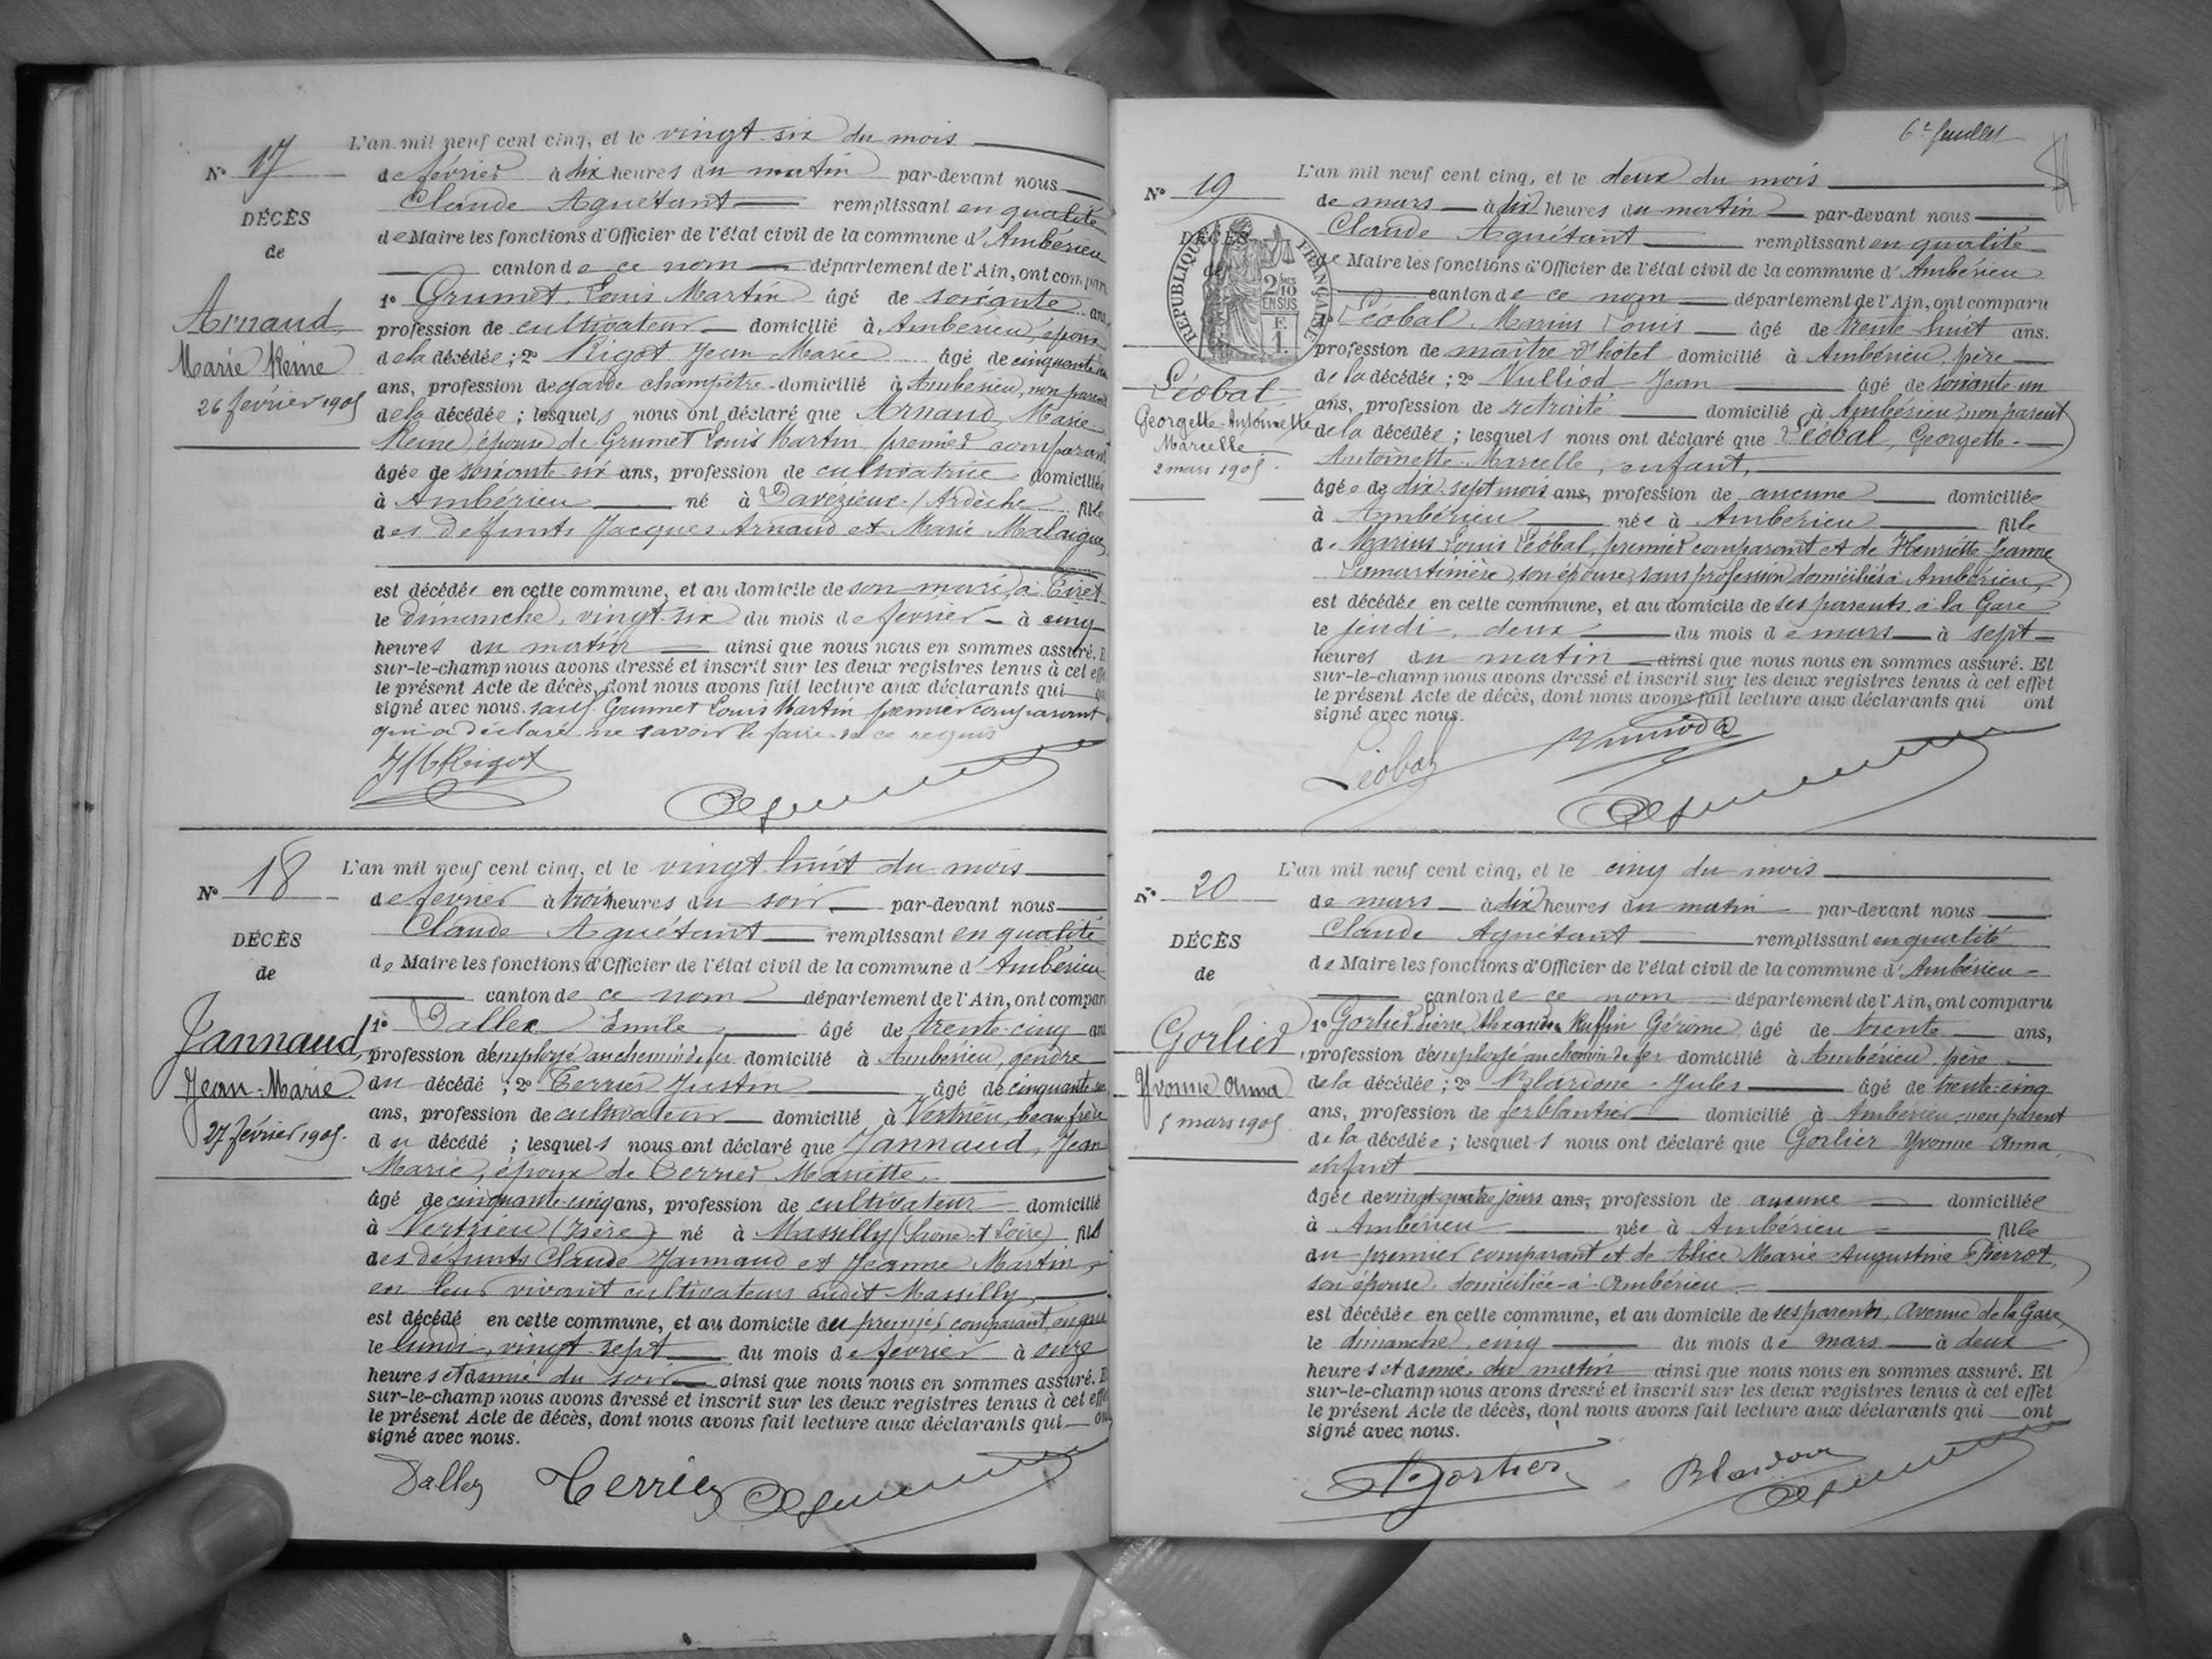 L'an mil neuf cent cinq, et le vingt-six du mois
N° 17
de février à dix heures du matin par-devant nous
Claude Aguétant remplissant en qualité
DÉCÈS
de Maire les fonctions d'Officier de l'état civil de la commune d'Ambérieu
de
canton de ce nom département de l'Ain, ont compar
1° Grumet Louis Martin âgé de soixante ans,
Arnaud
profession de cultivateur domicilié à Ambérieu, époux
Marie Reine
de la décédée ; 2° Rigot Jean Marie âgé de cinquante
26 février 1905
ans, profession de garde champêtre domicilié à Ambérieu, non parent
de la décédée ; lesquels nous ont déclaré que Arnaud, Marie
Reine, épouse de Grumet Louis Martin, premier comparant
âgée de soixante six ans, profession de cultivatrice domiciliée
à Ambérieu né à Davézieux (Ardèche) fille
des défunts Jacques Arnaud et Marie Malaigue
est décédée en cette commune, et au domicile de son mari, à Tiret
le Dimanche, vingt-six du mois de février à cinq
heures du matin ainsi que nous nous en sommes assuré. E
sur-le-champ nous avons dressé et inscrit sur les deux registres tenus à cet effe
le présent Acte de décès, dont nous avons fait lecture aux déclarants qui
signé avec nous. sauf Grumet Louis Martin premier comparant
qui a déclaré ne savoir le faire de ce requis
JM Rigot
L'an mil neuf cent cinq, et le vingt-huit du mois
N° 18
de février à trois heures du soir par-devant nous
Claude Aguétant remplissant en qualité
DÉCÈS
de Maire les fonctions d'Officier de l'état civil de la commune d'Ambérieu
de
canton de ce nom département de l'Ain, ont compar
1° Dallex Emile âgé de trente-cinq ans
Jannaud
profession d'employé au chemin de fer domicilié à Ambérieu, gendre
Jean-Marie
du décédé ; 2° Terrier Justin âgé de cinquante
ans, profession de cultivateur domicilié à Vertrieu, beau frère
27 février 1905.
du décédé ; lesquels nous ont déclaré que Jannaud, Jean
Marie, époux de Terrier Mariette
âgé de cinquante-cinq ans, profession de cultivateur domicilié
à Vertrieu (Isère) né à Massilly (Saône et Loire) fils
des défunts Claude Jannaud et Jeanne Martin,
en leur vivant cultivateurs audit Massilly,
est décédé en cette commune, et au domicile du premier comparant, en gare
le lundi, vingt-sept du mois de février à onze
heures et demie du soir ainsi que nous nous en sommes assuré. E
sur-le-champ nous avons dressé et inscrit sur les deux registres tenus à cet effe
le présent Acte de décès, dont nous avons fait lecture aux déclarants qui on
signé avec nous.
Dallex Terrier
6e feuillet
L'an mil neuf cent cinq, et le deux du mois
N° 19
de mars à dix heures du matin par-devant nous
Claude Aguétant remplissant en qualité
DÉCÈS
de
RÉPUBLIQUE FRANÇAISE
2/10 EN SUS
F. 1.
de Maire les fonctions d'Officier de l'état civil de la commune d'Ambérieu
canton de ce nom département de l'Ain, ont comparu
1° Léobal Marius Louis âgé de trente-huit ans.
profession de maître d'hôtel domicilié à Ambérieu, père
Léobal
de la décédée ; 2° Vulliod Jean âgé de soixante-un
Georgette Antoinette
ans, profession de retraité domicilié à Ambérieu, non parent
Marcelle
de la décédée ; lesquels nous ont déclaré que Léobal, Georgette-
2 mars 1905.
Antoinette-Marcelle, enfant,
âgée de dix-sept mois ans, profession de aucune domiciliée
à Ambérieu née à Ambérieu fille
de Marius Louis Léobal, premier comparant et de Henriette Jeanne
Lamartinière, son épouse, sans profession, domiciliés à Ambérieu,
est décédée en cette commune, et au domicile de ses parents, à la Gare
le jeudi, deux du mois de mars à sept
heures du matin ainsi que nous nous en sommes assuré. Et
sur-le-champ nous avons dressé et inscrit sur les deux registres tenus à cet effet
le présent Acte de décès, dont nous avons fait lecture aux déclarants qui ont
signé avec nous.
Léobal
L'an mil neuf cent cinq, et le cinq du mois
N° 20
de mars à dix heures du matin par-devant nous
Claude Aguétant remplissant en qualité
DÉCÈS
de Maire les fonctions d'Officier de l'état civil de la commune d'Ambérieu
de
canton de ce nom département de l'Ain, ont comparu
1° Gorlier Pierre Alexandre Ruffin Gérôme âgé de trente ans,
Gorlier
profession d'employé au chemin de fer domicilié à Ambérieu, père
Yvonne Anna
de la décédée ; 2° Blardone Jules âgé de trente-cinq
5 mars 1905
ans, profession de ferblantier domicilié à Ambérieu, non parent
de la décédée ; lesquels nous ont déclaré que Gorlier Yvonne Anna,
enfant
âgée de vingt-quatre jours ans, profession de aucune domiciliée
à Ambérieu née à Ambérieu fille
du premier comparant et de Alice Marie Augustine Pierrot,
son épouse, domiciliée à Ambérieu
est décédée en cette commune, et au domicile de ses parents, Avenue de la Gare,
le dimanche, cinq du mois de mars à deux
heures et demie du matin ainsi que nous nous en sommes assuré. Et
sur-le-champ nous avons dressé et inscrit sur les deux registres tenus à cet effet
le présent Acte de décès, dont nous avons fait lecture aux déclarants qui ont
signé avec nous.
Gorlier Blardone